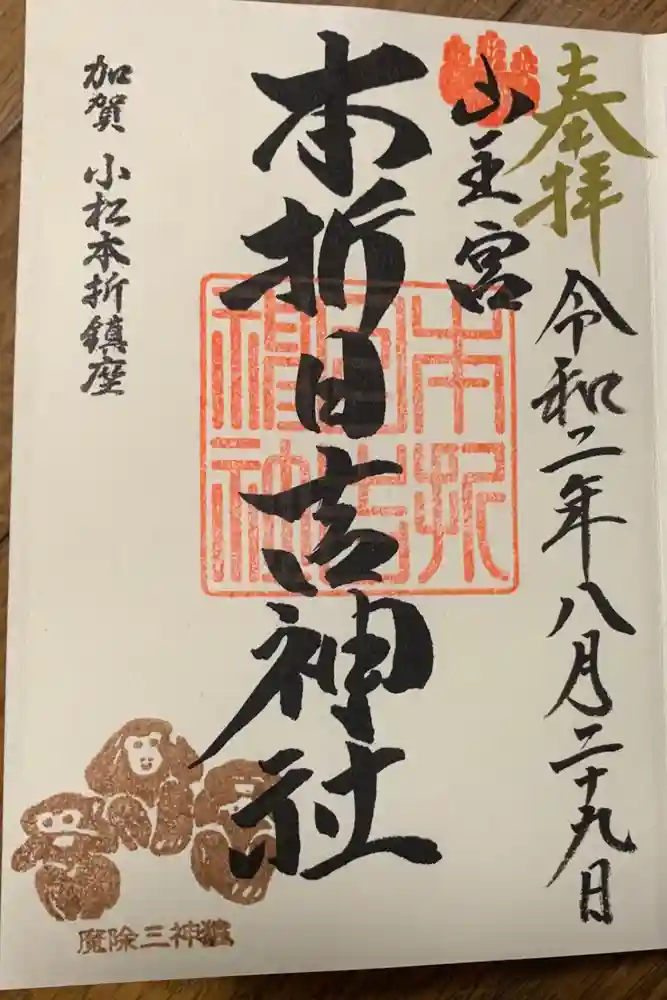 奉拝
令和二年八月二十九日
山王宮
本折日吉神社
本折
日吉
神社
加賀 小松本折鎮座
魔除三神猿